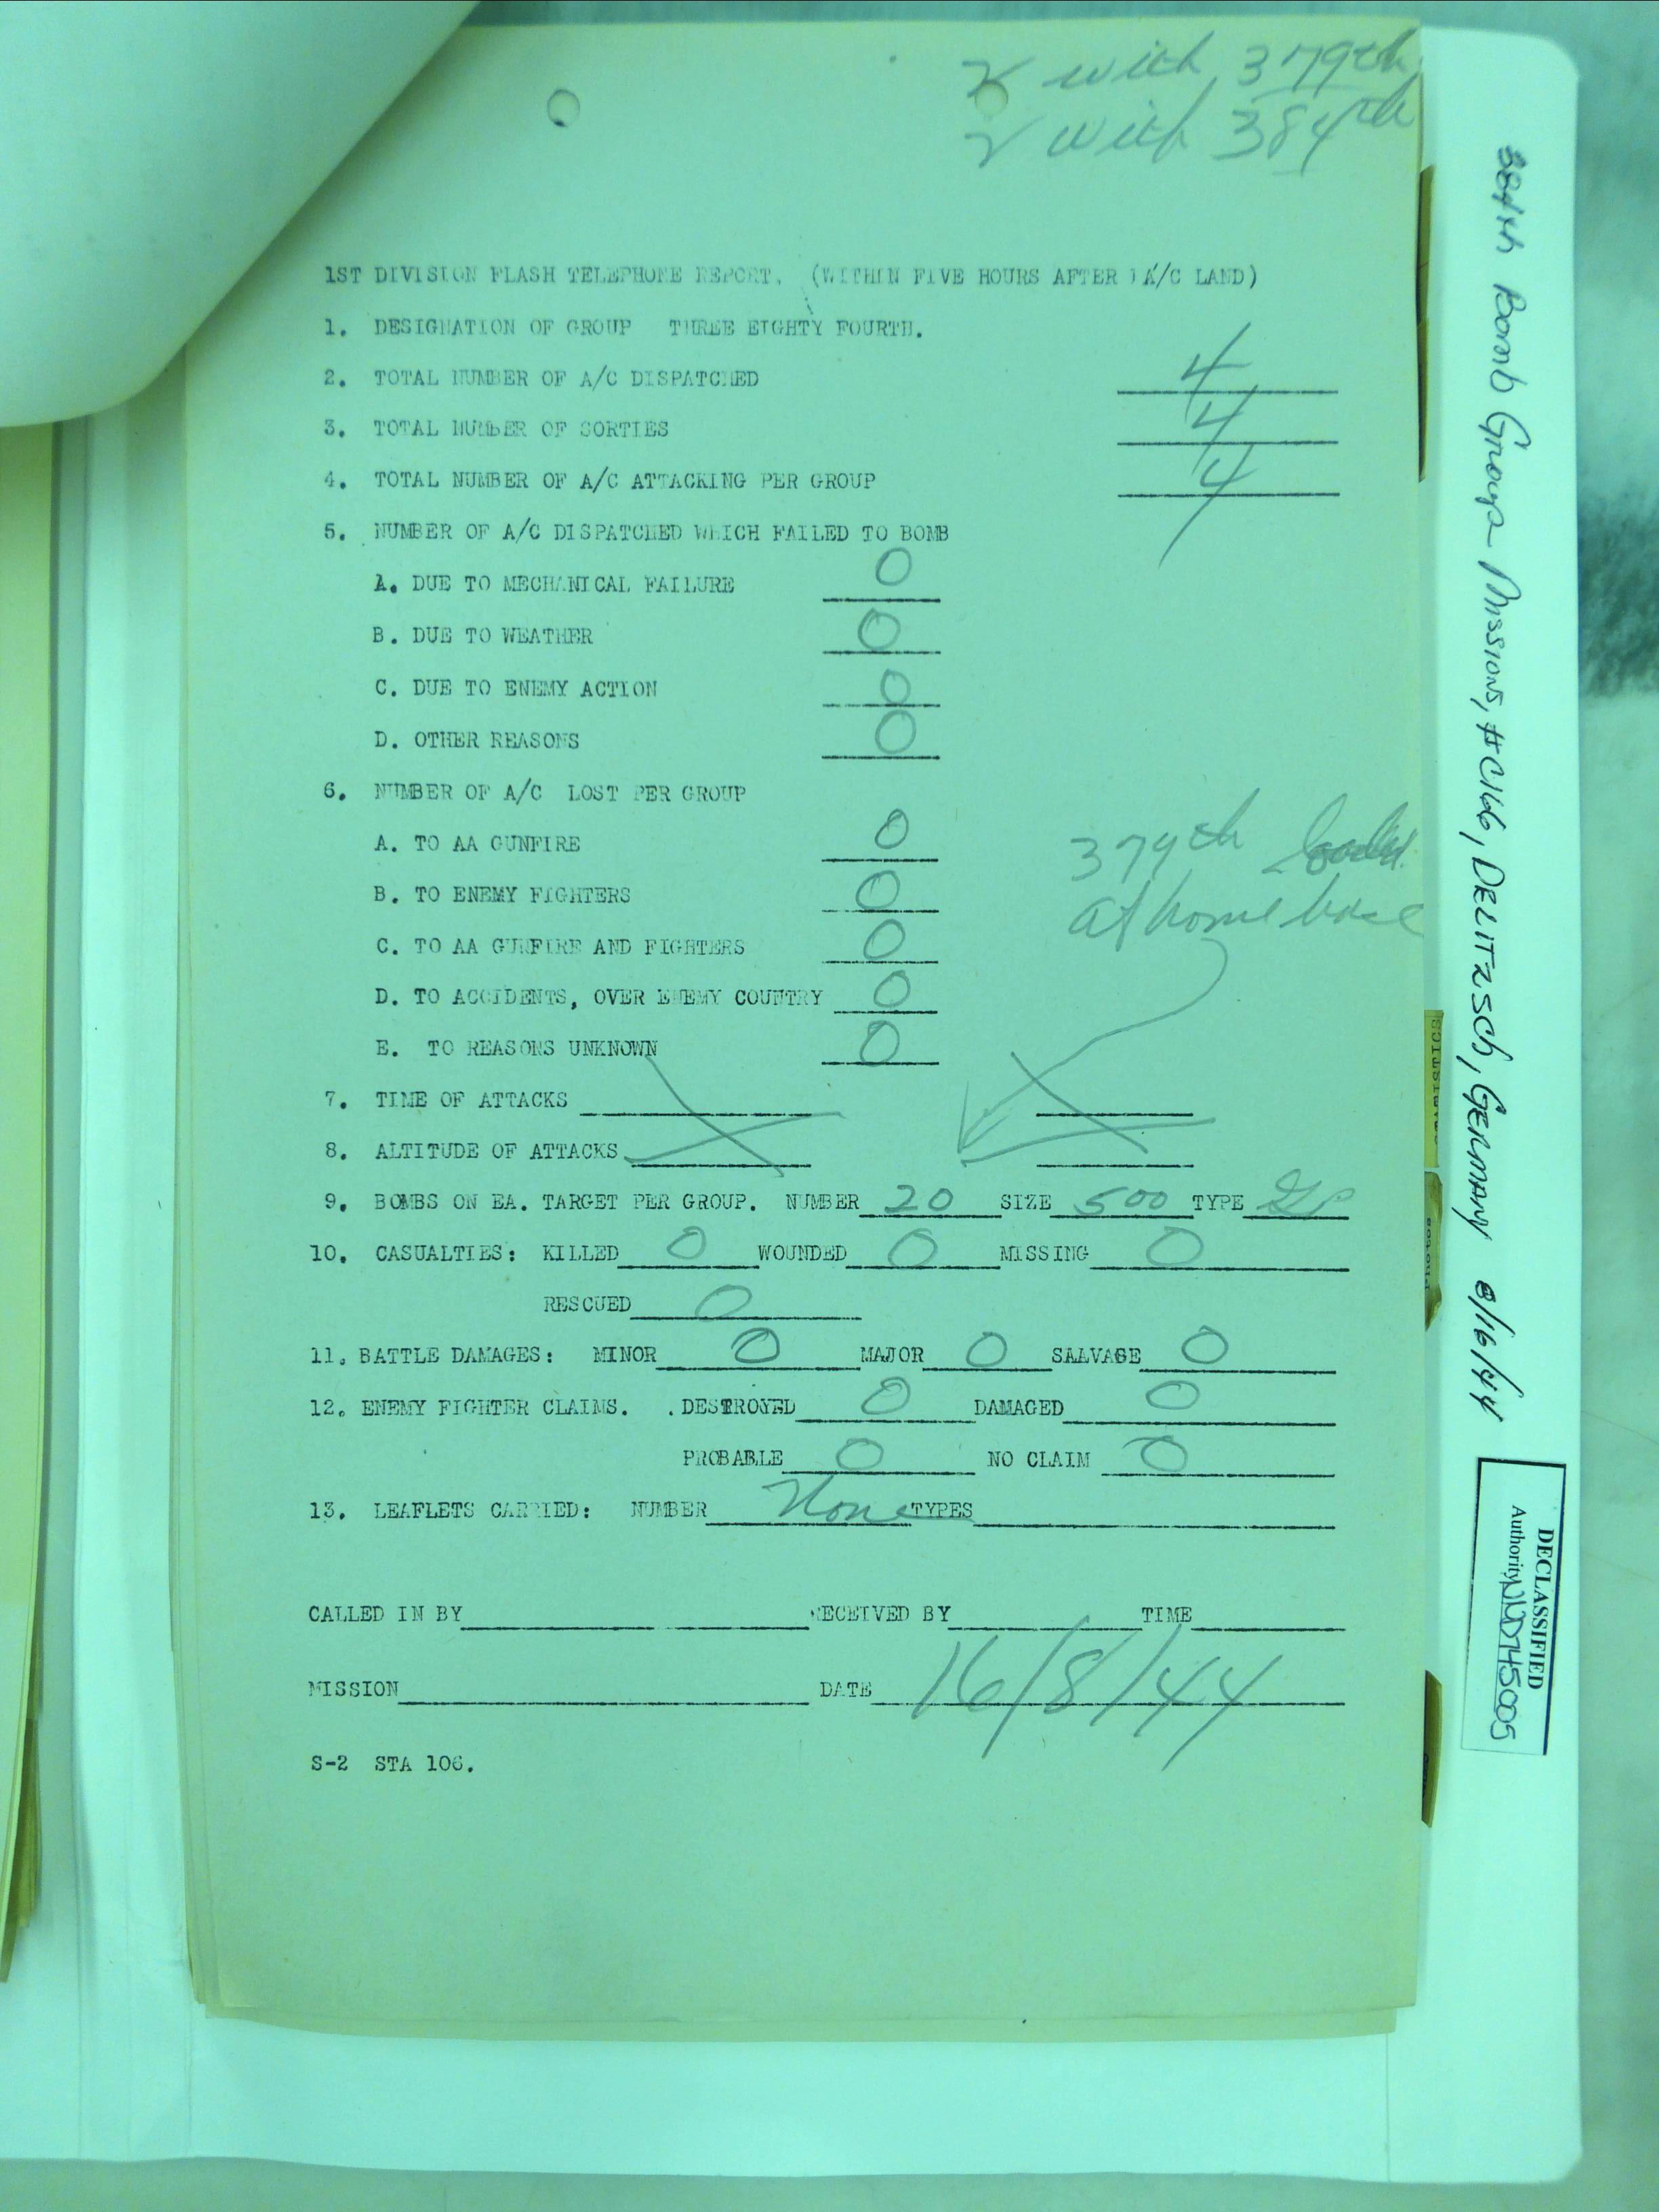 2 with 379th
2 with 384th
1ST DIVISION FLASH TELEPHONE REPORT. (WITHIN FIVE HOURS AFTER A/C LAND)
1. DESIGNATION OF GROUP THREE EIGHTY FOURTH.
2. TOTAL NUMBER OF A/C DISPATCHED 4
3. TOTAL NUMBER OF SORTIES 4
4. TOTAL NUMBER OF A/C ATTACKING PER GROUP 4
5. NUMBER OF A/C DISPATCHED WHICH FAILED TO BOMB
A. DUE TO MECHANICAL FAILURE 0
B. DUE TO WEATHER 0
C. DUE TO ENEMY ACTION 0
D. OTHER REASONS 0
6. NUMBER OF A/C LOST PER GROUP
A. TO AA GUNFIRE 0
B. TO ENEMY FIGHTERS 0
C. TO AA GUNFIRE AND FIGHTERS 0
D. TO ACCIDENTS, OVER ENEMY COUNTRY 0
E. TO REASONS UNKNOWN 0
379th
at home base
7. TIME OF ATTACKS
8. ALTITUDE OF ATTACKS
9. BOMBS ON EA. TARGET PER GROUP. NUMBER 20 SIZE 500 TYPE GP
10. CASUALTIES: KILLED 0 WOUNDED 0 MISSING 0
RESCUED 0
11. BATTLE DAMAGES: MINOR 0 MAJOR 0 SALVAGE 0
12. ENEMY FIGHTER CLAIMS. . DESTROYED 0 DAMAGED 0
PROBABLE 0 NO CLAIM 0
13. LEAFLETS CARRIED: NUMBER None TYPES
CALLED IN BY RECEIVED BY TIME
MISSION DATE 16/8/44
S-2 STA 106.
384th Bomb Group Missions, #C166, DELITZSCh, GERMANY 8/16/44
DECLASSIFIED
Authority NND745005
STATISTICS
Photos